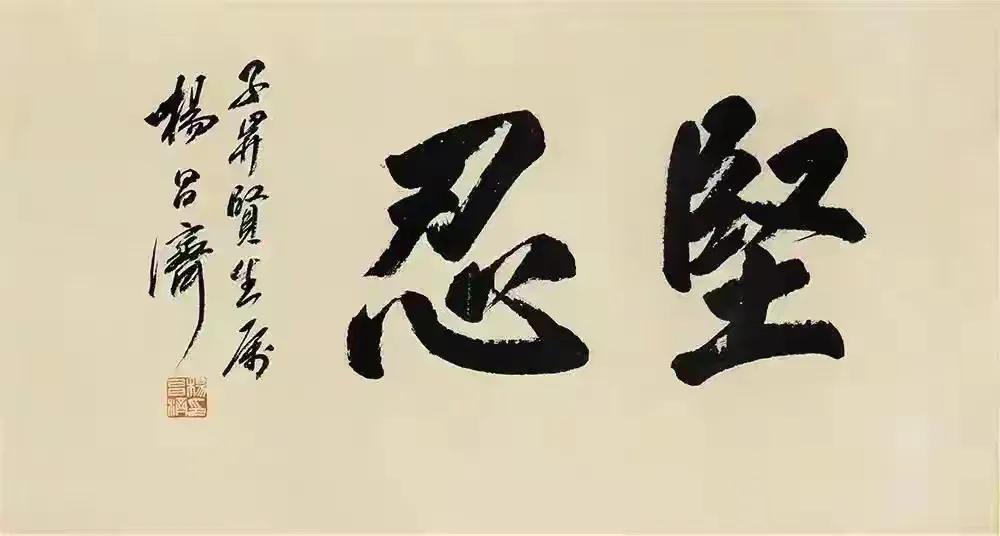 堅忍
子昇賢生属
楊昌濟